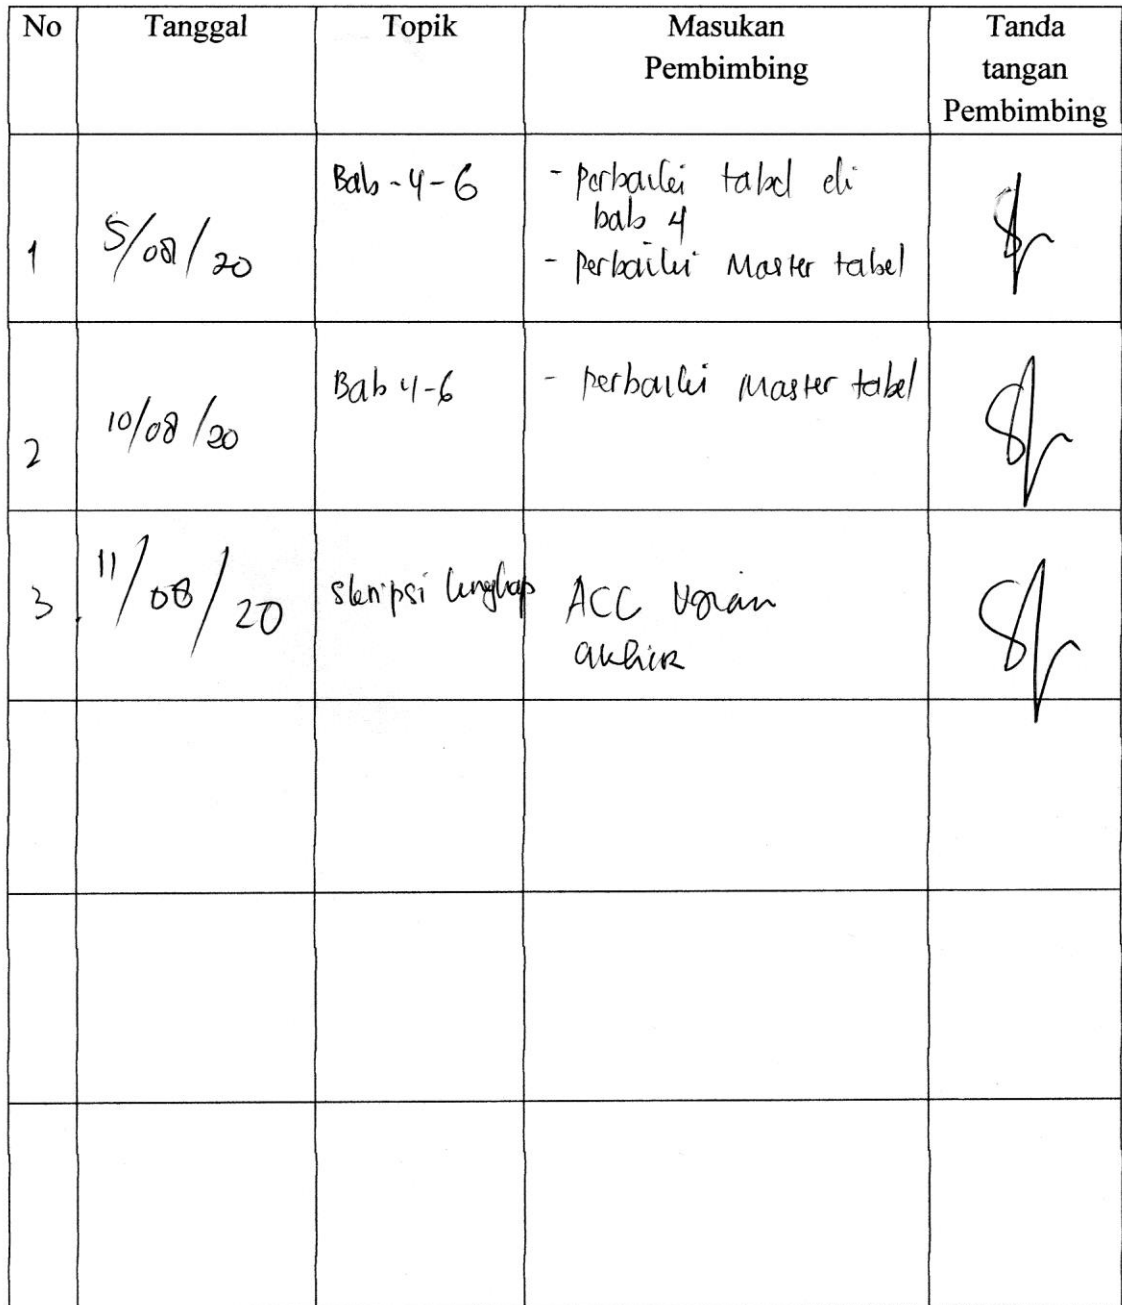 No Tanggal Topik Masukan Pembimbing Tanda tangan Pembimbing
1 5/08/20 Bab-4-6 - perbaiki tabel di
bab 4
- perbaiki Master tabel
2 10/08/20 Bab 4-6 - perbaiki Master tabel
3. 11/08/20 skripsi lengkap ACC Ujian
akhir